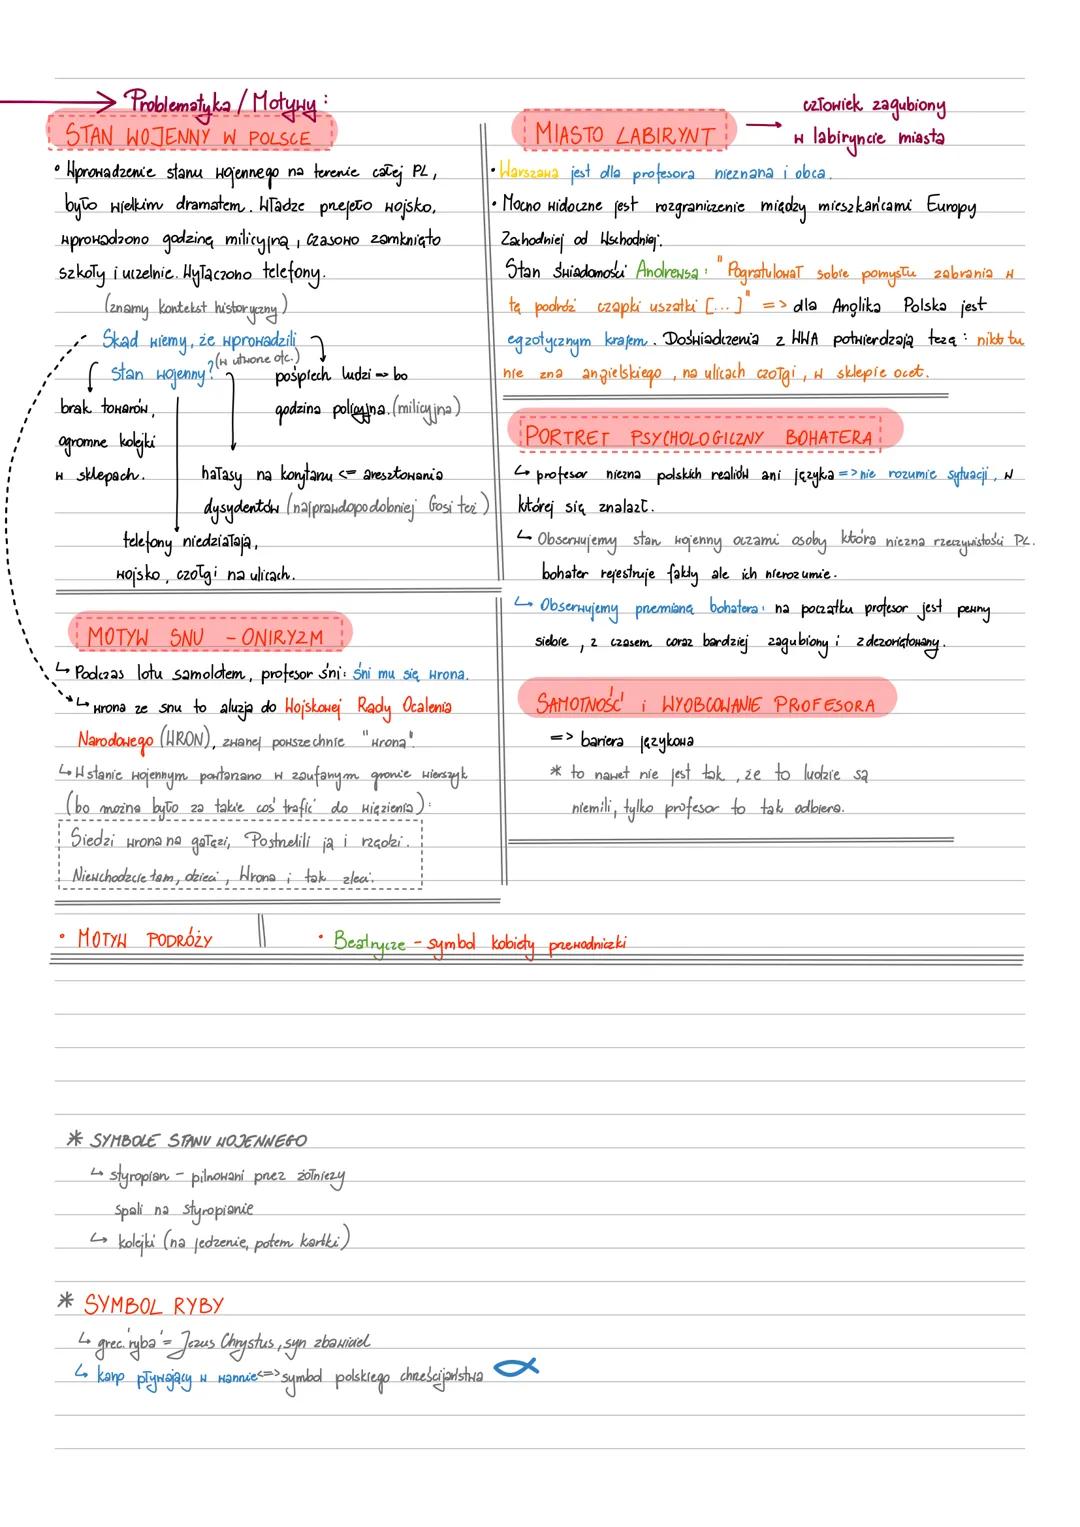 Problematyka / Motywy :
STAN WOJENNY W POLSCE
• Wprowadzenie stanu wojennego na terenie całej PL,
było wielkim dramatem. Władze przejęło wojsko,
wprowadzono godzinę milicyjną, czasowo zamknięto
szkoły i uczelnie. Wyłączono telefony.
(znamy kontekst historyczny)
Skąd wiemy, że wprowadzili
stan wojenny? (w utworze ofc.)
brak towarów,
ogromne kolejki
w sklepach.
telefony niedziałają,
wojsko, czołgi na ulicach.
hałasy na korytarzu <= aresztowania
dysydentów (najprawdopodobniej Gosi też)
pośpiech ludzi => bo
godzina policyjna. (milicyjna)
MOTYW SNU - ONIRYZM
↳ Podczas lotu samolotem, profesor śni: śni mu się wrona.
↳ wrona ze snu to aluzja do Wojskowej Rady Ocalenia
Narodowego (WRON), zwanej powszechnie "wroną".
↳ W stanie wojennym powtarzano w zaufanym gronie wierszyk
(bo można było za takie coś trafić do więzienia):
Siedzi wrona na gałęzi, Postrzelili ją i rzędzi.
Niewchodzcie tam, dzieci, Wrona i tak zleci.
• MOTYW PODRÓŻY
MIASTO LABIRYNT → człowiek zagubiony
w labiryncie miasta
• Warszawa jest dla profesora nieznana i obca.
• Mocno widoczne jest rozgraniczenie między mieszkańcami Europy
Zachodniej od Wschodniej.
Stan świadomości Andrewsa: "Pogratulował sobie pomysłu zabrania w
tę podróż czapki uszatki [...]" => dla Anglika Polska jest
egzotycznym krajem. Doświadczenia z WWA potwierdzają tezę: nikt tu
nie zna angielskiego, na ulicach czołgi, w sklepie ocet.
PORTRET PSYCHOLOGICZNY BOHATERA
↳ profesor niezna polskich realiów ani języka => nie rozumie sytuacji, w
której się znalazł.
↳ Obserwujemy stan wojenny oczami osoby która niezna rzeczywistości PL.
bohater rejestruje fakty ale ich nierozumie.
↳ Obserwujemy przemianę bohatera: na początku profesor jest pewny
siebie, z czasem coraz bardziej zagubiony i zdezorientowany.
SAMOTNOŚĆ i WYOBCOWANIE PROFESORA
=> bariera językowa
* to nawet nie jest tak, że to ludzie są
niemili, tylko profesor to tak odbiera.
• Beatrycze - symbol kobiety przewodniczki
* SYMBOLE STANU WOJENNEGO
↳ styropian - pilnowani przez żołnierzy
spali na styropianie
↳ kolejki (na jedzenie, potem kartki)
* SYMBOL RYBY
↳ grec. 'ryba' = Jezus Chrystus, syn zbawiciel
↳ karp pływający w wannie <=> symbol polskiego chrześcijaństwa